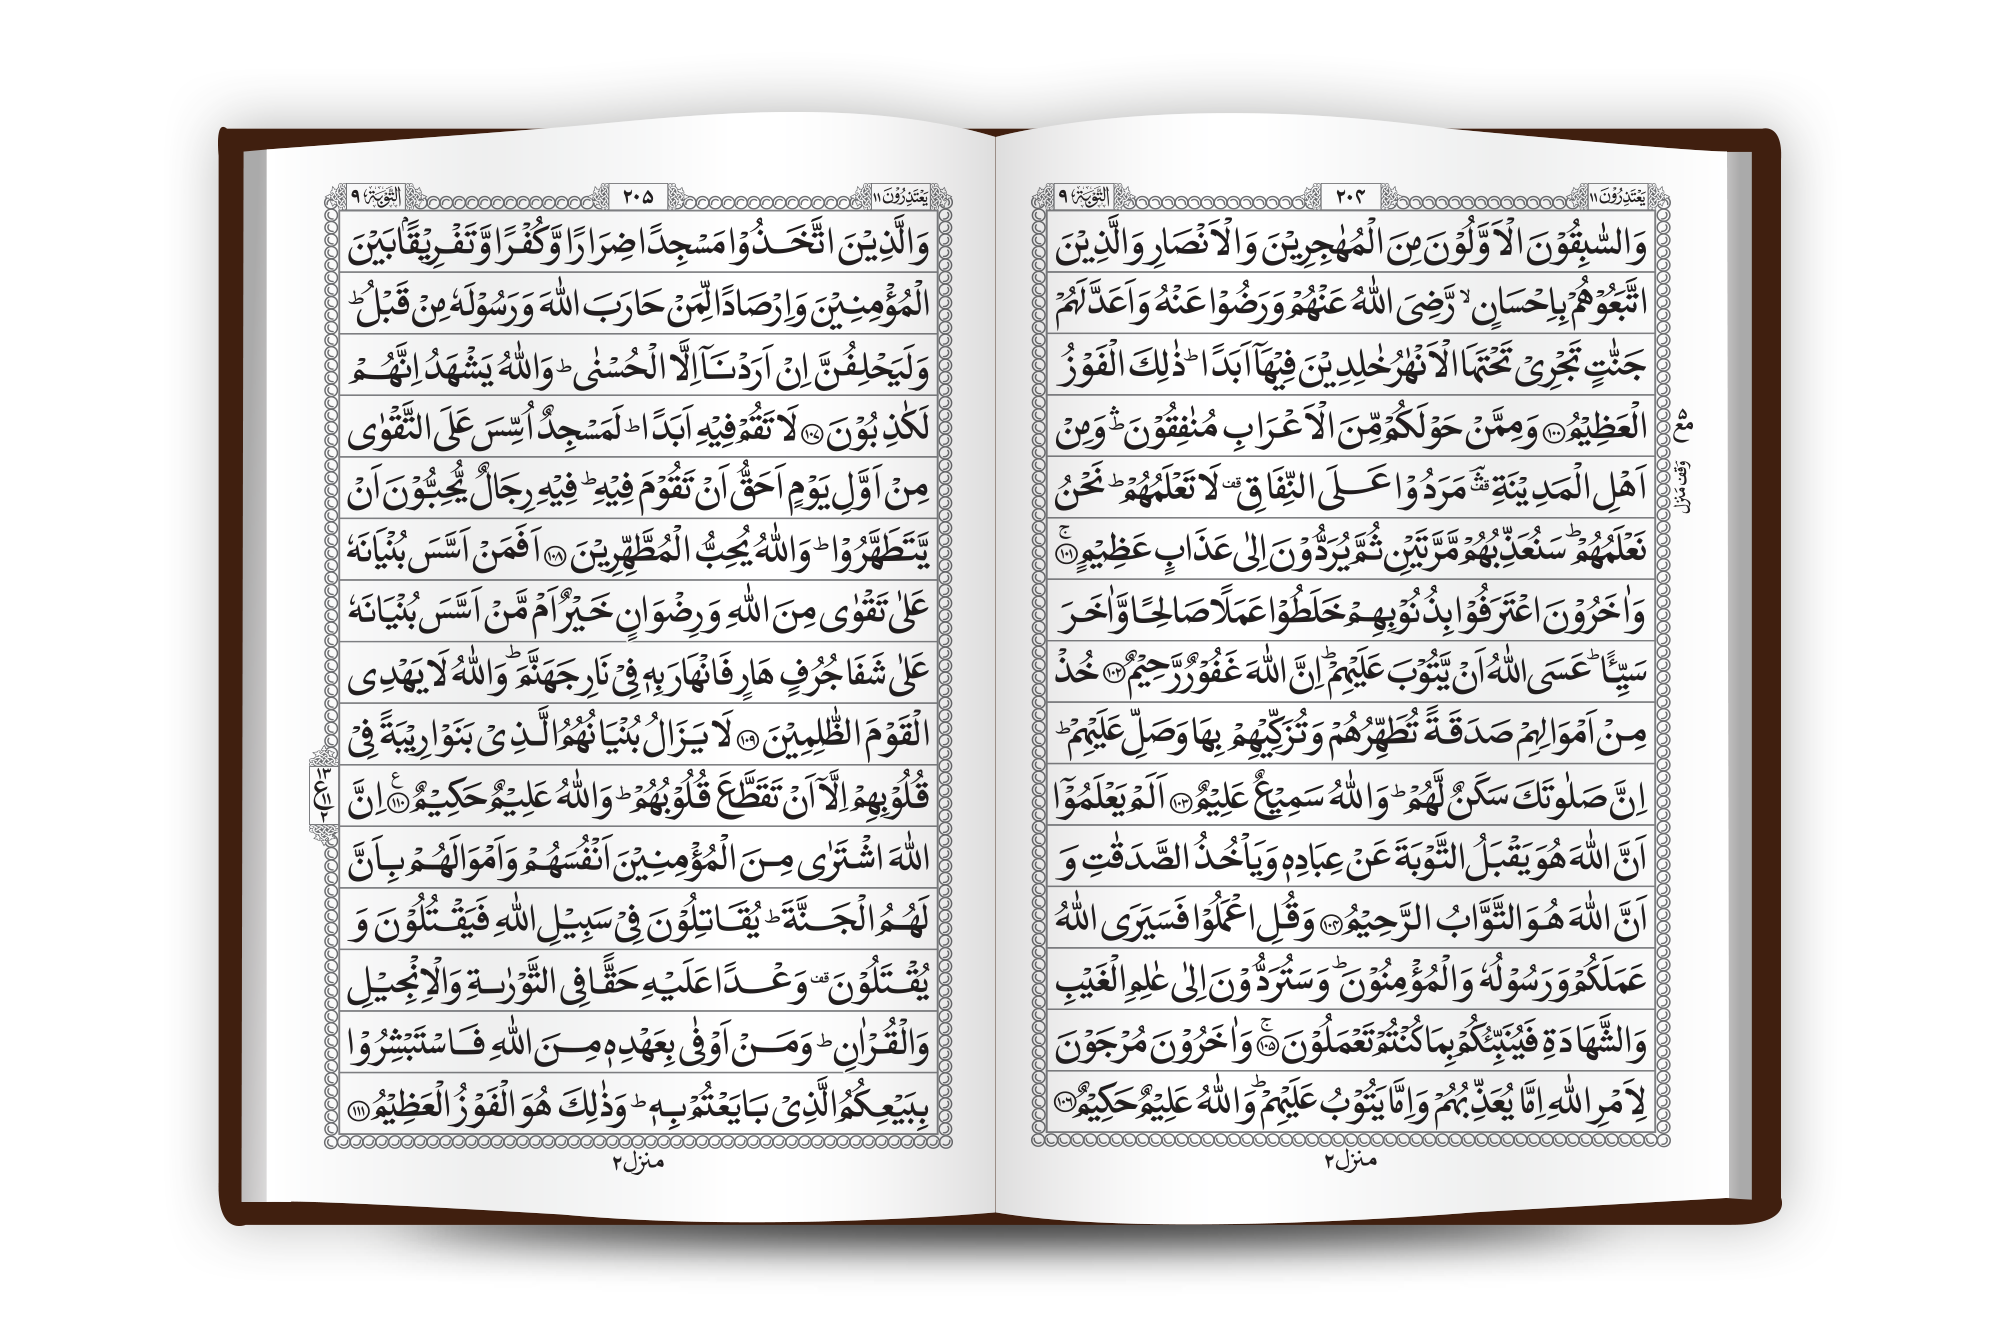 يَعْتَذِرُوْنَ ۱۱
۲۰۴
التَّوْبَة ۹
وَالسّٰبِقُوْنَ الْاَوَّلُوْنَ مِنَ الْمُهٰجِرِيْنَ وَالْاَنْصَارِ وَالَّذِيْنَ
اتَّبَعُوْهُمْ بِاِحْسَانٍ ۙ رَّضِىَ اللّٰهُ عَنْهُمْ وَرَضُوْا عَنْهُ وَاَعَدَّ لَهُمْ
جَنّٰتٍ تَجْرِىْ تَحْتَهَا الْاَنْهٰرُ خٰلِدِيْنَ فِيْهَاۤ اَبَدًا ؕ ذٰلِكَ الْفَوْزُ
الْعَظِيْمُ ﴿۱۰۰﴾ وَمِمَّنْ حَوْلَكُمْ مِّنَ الْاَعْرَابِ مُنٰفِقُوْنَ ۛؕ وَمِنْ
اَهْلِ الْمَدِيْنَةِ ؔۛقف مَرَدُوْا عَلَى النِّفَاقِ قف لَا تَعْلَمُهُمْ ؕ نَحْنُ
نَعْلَمُهُمْ ؕ سَنُعَذِّبُهُمْ مَّرَّتَيْنِ ثُمَّ يُرَدُّوْنَ اِلٰى عَذَابٍ عَظِيْمٍ ۚ﴿۱۰۱﴾
وَاٰخَرُوْنَ اعْتَرَفُوْا بِذُنُوْبِهِمْ خَلَطُوْا عَمَلًا صَالِحًا وَّاٰخَرَ
سَيِّئًا ؕ عَسَى اللّٰهُ اَنْ يَّتُوْبَ عَلَيْهِمْ ؕ اِنَّ اللّٰهَ غَفُوْرٌ رَّحِيْمٌ ﴿۱۰۲﴾ خُذْ
مِنْ اَمْوَالِهِمْ صَدَقَةً تُطَهِّرُهُمْ وَتُزَكِّيْهِمْ بِهَا وَصَلِّ عَلَيْهِمْ ؕ
اِنَّ صَلٰوتَكَ سَكَنٌ لَّهُمْ ؕ وَاللّٰهُ سَمِيْعٌ عَلِيْمٌ ﴿۱۰۳﴾ اَلَمْ يَعْلَمُوْۤا
اَنَّ اللّٰهَ هُوَ يَقْبَلُ التَّوْبَةَ عَنْ عِبَادِهٖ وَيَاْخُذُ الصَّدَقٰتِ وَ
اَنَّ اللّٰهَ هُوَ التَّوَّابُ الرَّحِيْمُ ﴿۱۰۴﴾ وَقُلِ اعْمَلُوْا فَسَيَرَى اللّٰهُ
عَمَلَكُمْ وَرَسُوْلُهٗ وَالْمُؤْمِنُوْنَ ؕ وَسَتُرَدُّوْنَ اِلٰى عٰلِمِ الْغَيْبِ
وَالشَّهَادَةِ فَيُنَبِّئُكُمْ بِمَا كُنْتُمْ تَعْمَلُوْنَ ۚ﴿۱۰۵﴾ وَاٰخَرُوْنَ مُرْجَوْنَ
لِاَمْرِ اللّٰهِ اِمَّا يُعَذِّبُهُمْ وَاِمَّا يَتُوْبُ عَلَيْهِمْ ؕ وَاللّٰهُ عَلِيْمٌ حَكِيْمٌ ﴿۱۰۶﴾
مع ۵
وقف منزل
منزل ۲
يَعْتَذِرُوْنَ ۱۱
۲۰۵
التَّوْبَة ۹
وَالَّذِيْنَ اتَّخَذُوْا مَسْجِدًا ضِرَارًا وَّكُفْرًا وَّتَفْرِيْقًۢا بَيْنَ
الْمُؤْمِنِيْنَ وَاِرْصَادًا لِّمَنْ حَارَبَ اللّٰهَ وَرَسُوْلَهٗ مِنْ قَبْلُ ؕ
وَلَيَحْلِفُنَّ اِنْ اَرَدْنَاۤ اِلَّا الْحُسْنٰى ؕ وَاللّٰهُ يَشْهَدُ اِنَّهُمْ
لَكٰذِبُوْنَ ﴿۱۰۷﴾ لَا تَقُمْ فِيْهِ اَبَدًا ؕ لَمَسْجِدٌ اُسِّسَ عَلَى التَّقْوٰى
مِنْ اَوَّلِ يَوْمٍ اَحَقُّ اَنْ تَقُوْمَ فِيْهِ ؕ فِيْهِ رِجَالٌ يُّحِبُّوْنَ اَنْ
يَّتَطَهَّرُوْا ؕ وَاللّٰهُ يُحِبُّ الْمُطَّهِّرِيْنَ ﴿۱۰۸﴾ اَفَمَنْ اَسَّسَ بُنْيَانَهٗ
عَلٰى تَقْوٰى مِنَ اللّٰهِ وَرِضْوَانٍ خَيْرٌ اَمْ مَّنْ اَسَّسَ بُنْيَانَهٗ
عَلٰى شَفَا جُرُفٍ هَارٍ فَانْهَارَ بِهٖ فِىْ نَارِ جَهَنَّمَ ؕ وَاللّٰهُ لَا يَهْدِى
الْقَوْمَ الظّٰلِمِيْنَ ﴿۱۰۹﴾ لَا يَزَالُ بُنْيَانُهُمُ الَّذِىْ بَنَوْا رِيْبَةً فِىْ
قُلُوْبِهِمْ اِلَّاۤ اَنْ تَقَطَّعَ قُلُوْبُهُمْ ؕ وَاللّٰهُ عَلِيْمٌ حَكِيْمٌ ﴿۱۱۰﴾ع اِنَّ
اللّٰهَ اشْتَرٰى مِنَ الْمُؤْمِنِيْنَ اَنْفُسَهُمْ وَاَمْوَالَهُمْ بِاَنَّ
لَهُمُ الْجَنَّةَ ؕ يُقَاتِلُوْنَ فِىْ سَبِيْلِ اللّٰهِ فَيَقْتُلُوْنَ وَ
يُقْتَلُوْنَ قف وَعْدًا عَلَيْهِ حَقًّا فِى التَّوْرٰىةِ وَالْاِنْجِيْلِ
وَالْقُرْاٰنِ ؕ وَمَنْ اَوْفٰى بِعَهْدِهٖ مِنَ اللّٰهِ فَاسْتَبْشِرُوْا
بِبَيْعِكُمُ الَّذِىْ بَايَعْتُمْ بِهٖ ؕ وَذٰلِكَ هُوَ الْفَوْزُ الْعَظِيْمُ ﴿۱۱۱﴾
۱۳
ع ۱۱
۲
منزل ۲